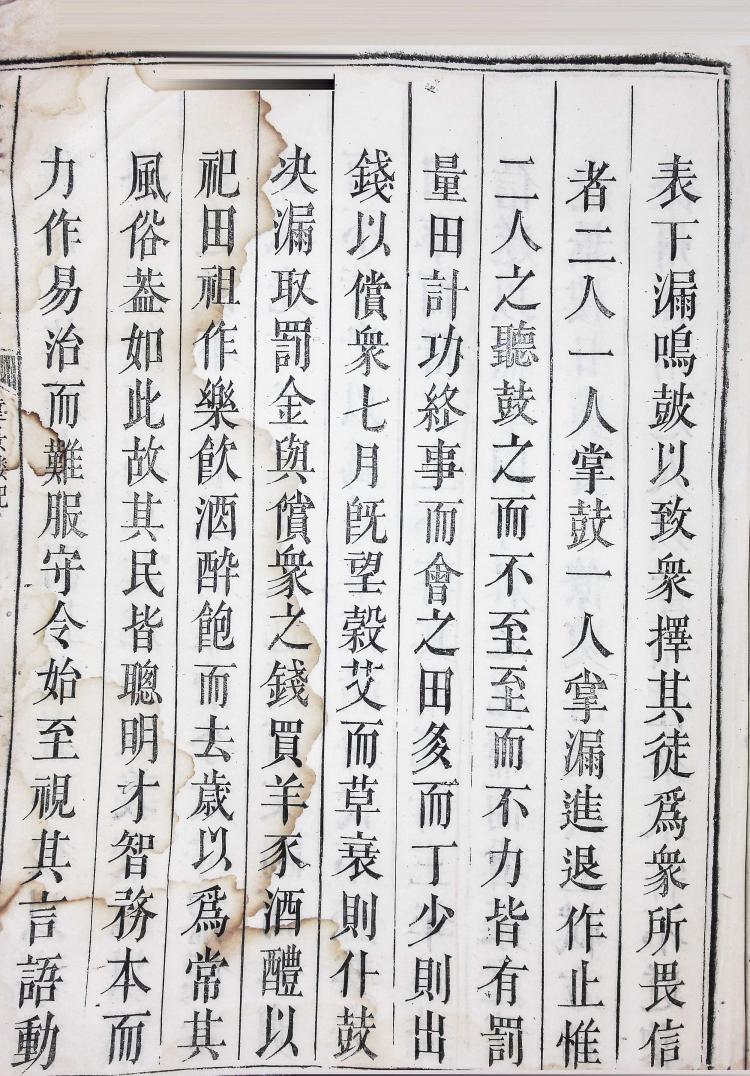 表下漏鳴鼓以致衆擇其徒爲衆所畏信
者二人一人掌鼓一人掌漏進退作止惟
二人之聽鼓之而不至至而不力皆有罰
量田計功終事而會之田多而丁少則出
錢以償衆七月旣望穀艾而草衰則仆鼓
决漏取罰金與償衆之錢買羊豕酒醴以
祀田祖作樂飲酒醉飽而去歲以爲常其
風俗葢如此故其民皆聰明才智務本而
力作易治而難服守令始至視其言語動